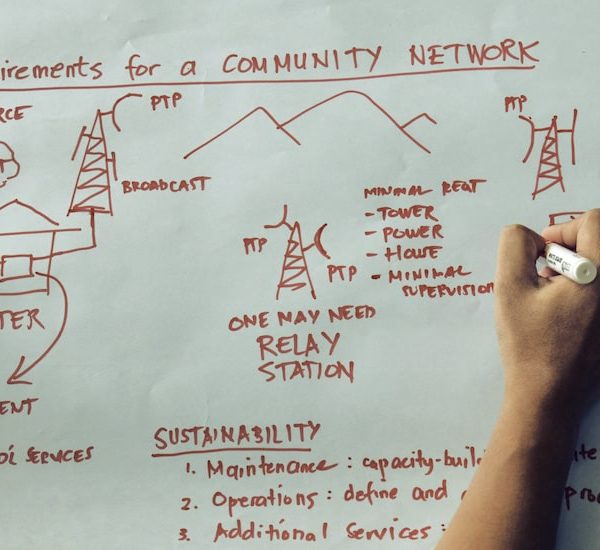 irements for a COMMUNITY NETWORK
RCE
PTP
BROADCAST
PTP
MINIMAL REQT
- TOWER
- POWER
- HOUSE
- MINIMAL
SUPERVISION
PTP
PTP
ONE MAY NEED
RELAY
STATION
TER
ENT
OL SERVICES
SUSTAINABILITY
1. Maintenance : capacity-buil
2. Operations : define and
3. Additional Services :